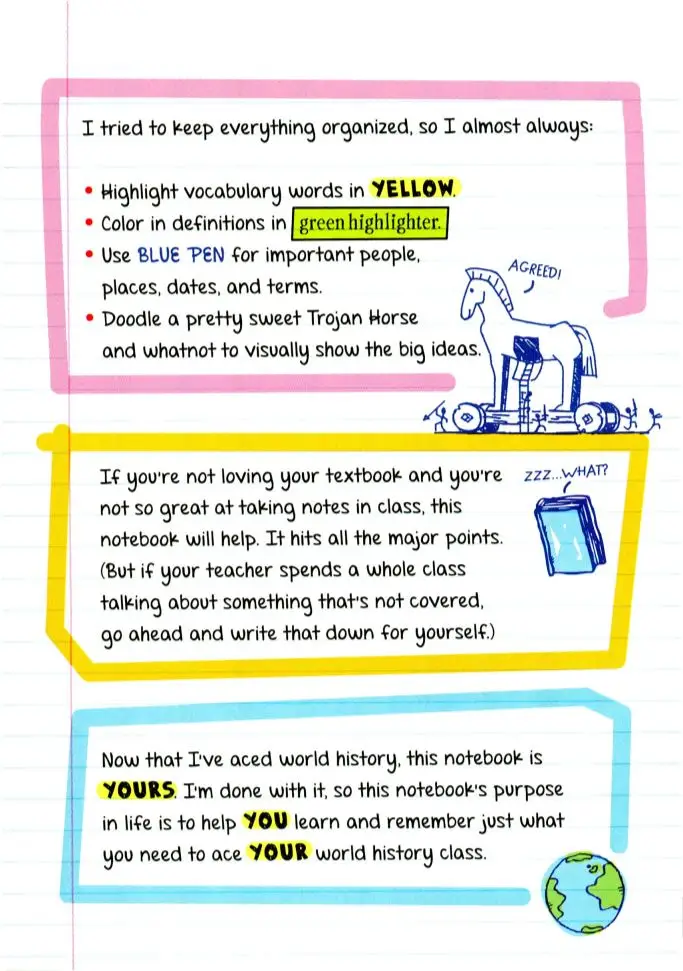 I tried to keep everything organized, so I almost always:
• Highlight vocabulary words in YELLOW.
• Color in definitions in green highlighter.
• Use BLUE PEN for important people,
places, dates, and terms.
• Doodle a pretty sweet Trojan Horse
and whatnot to visually show the big ideas.
AGREED!
If you're not loving your textbook and you're
not so great at taking notes in class, this
notebook will help. It hits all the major points.
(But if your teacher spends a whole class
talking about something that's not covered,
go ahead and write that down for yourself.)
ZZZ...WHAT?
Now that I've aced world history, this notebook is
YOURS. I'm done with it, so this notebook's purpose
in life is to help YOU learn and remember just what
you need to ace YOUR world history class.